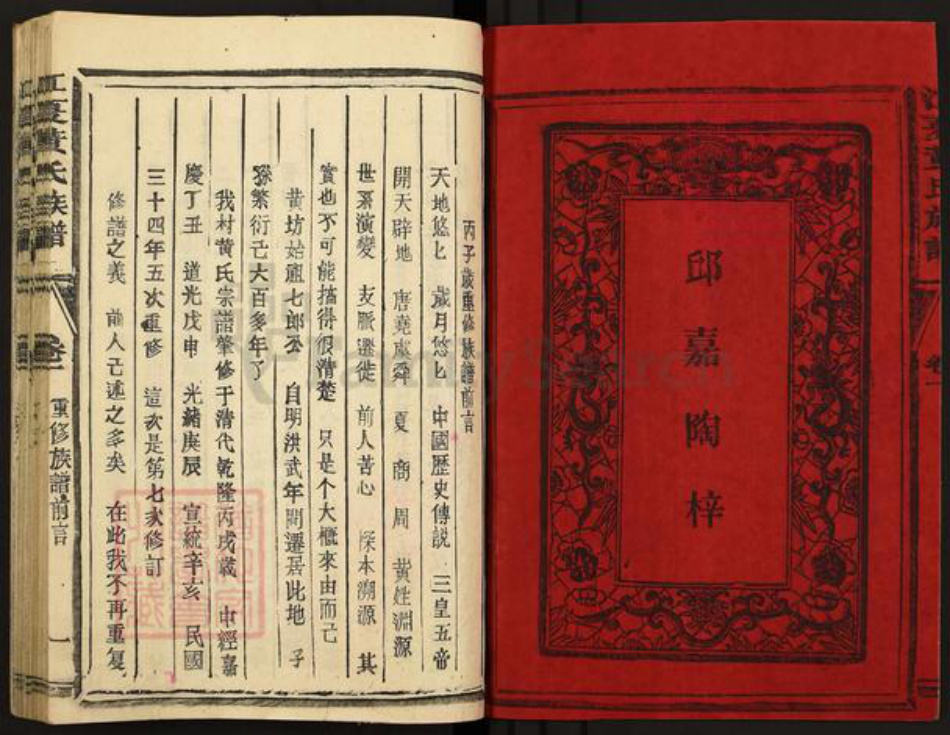 邱嘉陶梓
丙子歲重修族譜前言
天地悠匕 歲月悠匕 中國歷史傳説 三皇五帝
開天辟地 唐堯虞舜 夏 商 周 黄姓淵源
世系演變 支脈遷徙 前人苦心 探本溯源 其
實也不可能搞得很清楚 只是个大概來由而已
黄坊始祖七郎公 自明洪武年間遷居此地 子
孫繁衍已六百多年了
我村黄氏宗譜肇修于清代乾隆丙戌歲 中經嘉
慶丁丑 道光戊申 光緒庚辰 宣統辛亥 民國
三十四年五次重修 這次是第七次修訂
修譜之義 前人已述之多矣 在此我不再重复
江夏黄氏族譜 卷一 重修族譜前言 一
FamilySearch